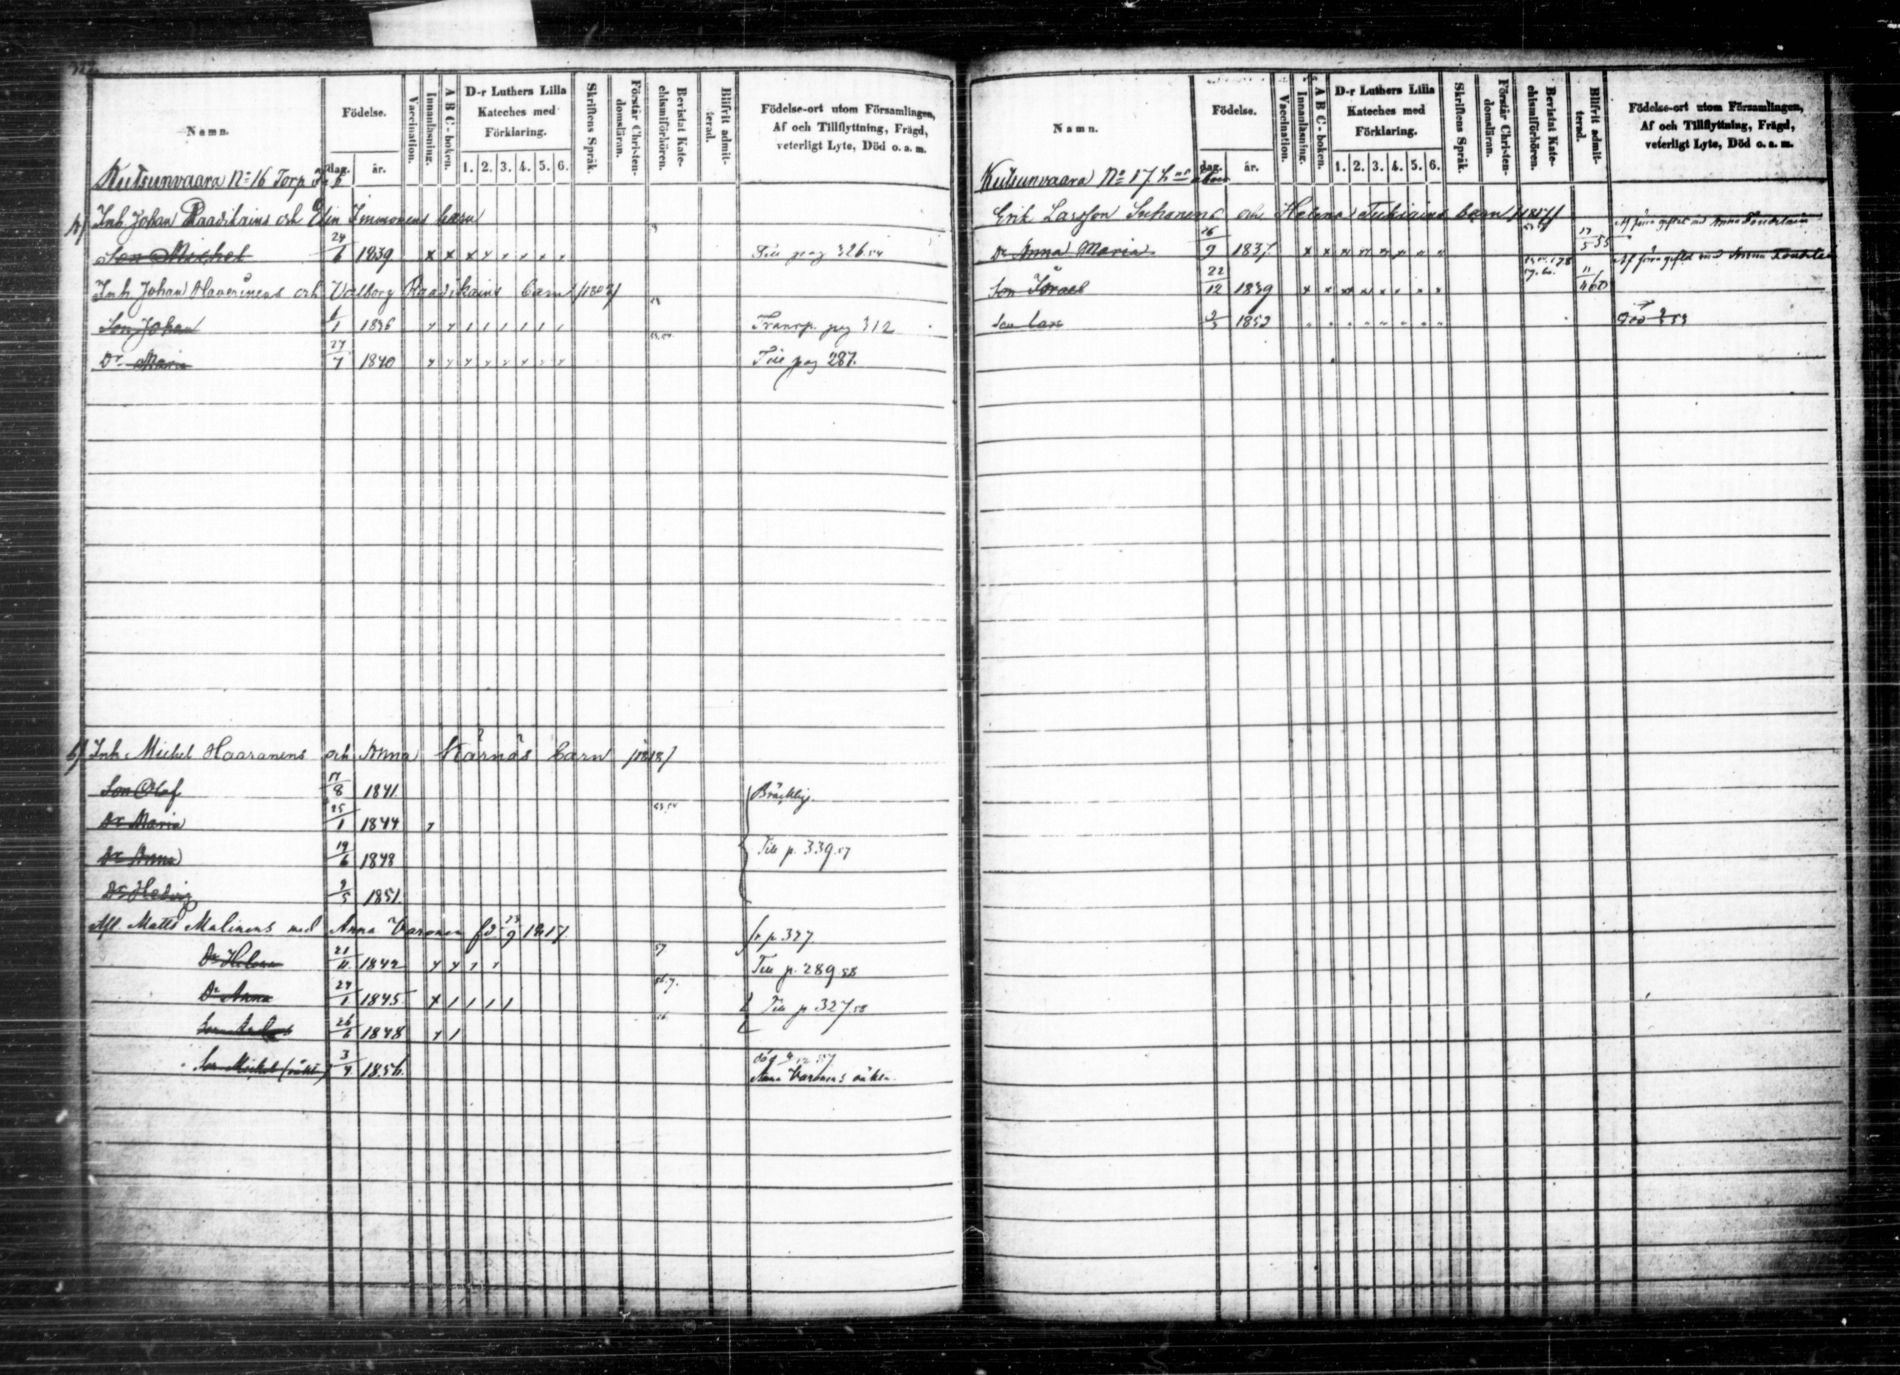 Namn.
Födelse.
dag. år.
Vaccination.
Innanläsning.
A B C-boken.
D-r Luthers Lilla Kateches med Förklaring.
1. 2. 3. 4. 5. 6.
Skriftens Språk.
Förstår Christendomsläran.
Bevistat Katechismiförhören.
Blifvit admitterad.
Födelse-ort utom Församlingen, Af och Tillflyttning, Frägd, veterligt Lyte, Död o. a. m.
Kutsunvaara No 16 Torp
a) Inh Johan Raadikains och Elin Immonens barn
Son Michel 24/6 1839 x x x x x x x x Till pag 326.54
Inh Johan Haverinens och Valborg Raadikains barn
Son Johan 1/1 1836 Transp. pag 312
Dr Maria 27/7 1840 Till pag 287.
b) Inh Michel Haaranens och Anna Kärnäs barn /1818/
Son Olof 17/8 1841. Bräcklig.
Dr Maria 25/1 1844
Dr Anna 19/6 1848 Till p. 339.57
Dr Hedvig 2/5 1851.
Afl. Matts Malinens med Anna Varonen fd 23/9 1817. fr p. 327.
Dr Helena 21/11 1842 57. Till p. 289 58
Dr Anna 27/1 1845 56.7. Till p. 327 58
Son 26/6 1848
Son Michel (oäkta) 3/4 1856.
Anna Varonens oäkta.
Namn.
Födelse.
dag. år.
Vaccination.
Innanläsning.
A B C-boken.
D-r Luthers Lilla Kateches med Förklaring.
1. 2. 3. 4. 5. 6.
Skriftens Språk.
Förstår Christendomsläran.
Bevistat Katechismiförhören.
Blifvit admitterad.
Födelse-ort utom Församlingen, Af och Tillflyttning, Frägd, veterligt Lyte, Död o. a. m.
Kutsunvaara No 17
Erik Larsson Suhonens och Helena Tukiains barn
Dr Anna Maria 26/9 1837. 17/5 55
Son Israel 22/12 1839
Son Lars 1853 Död